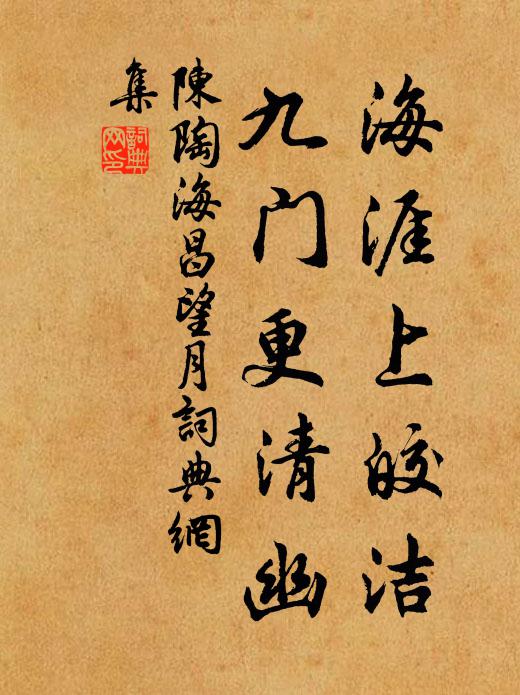 海涯上皎洁
九门更清幽
陳陶海昌望月詞典網
集
詞典网印